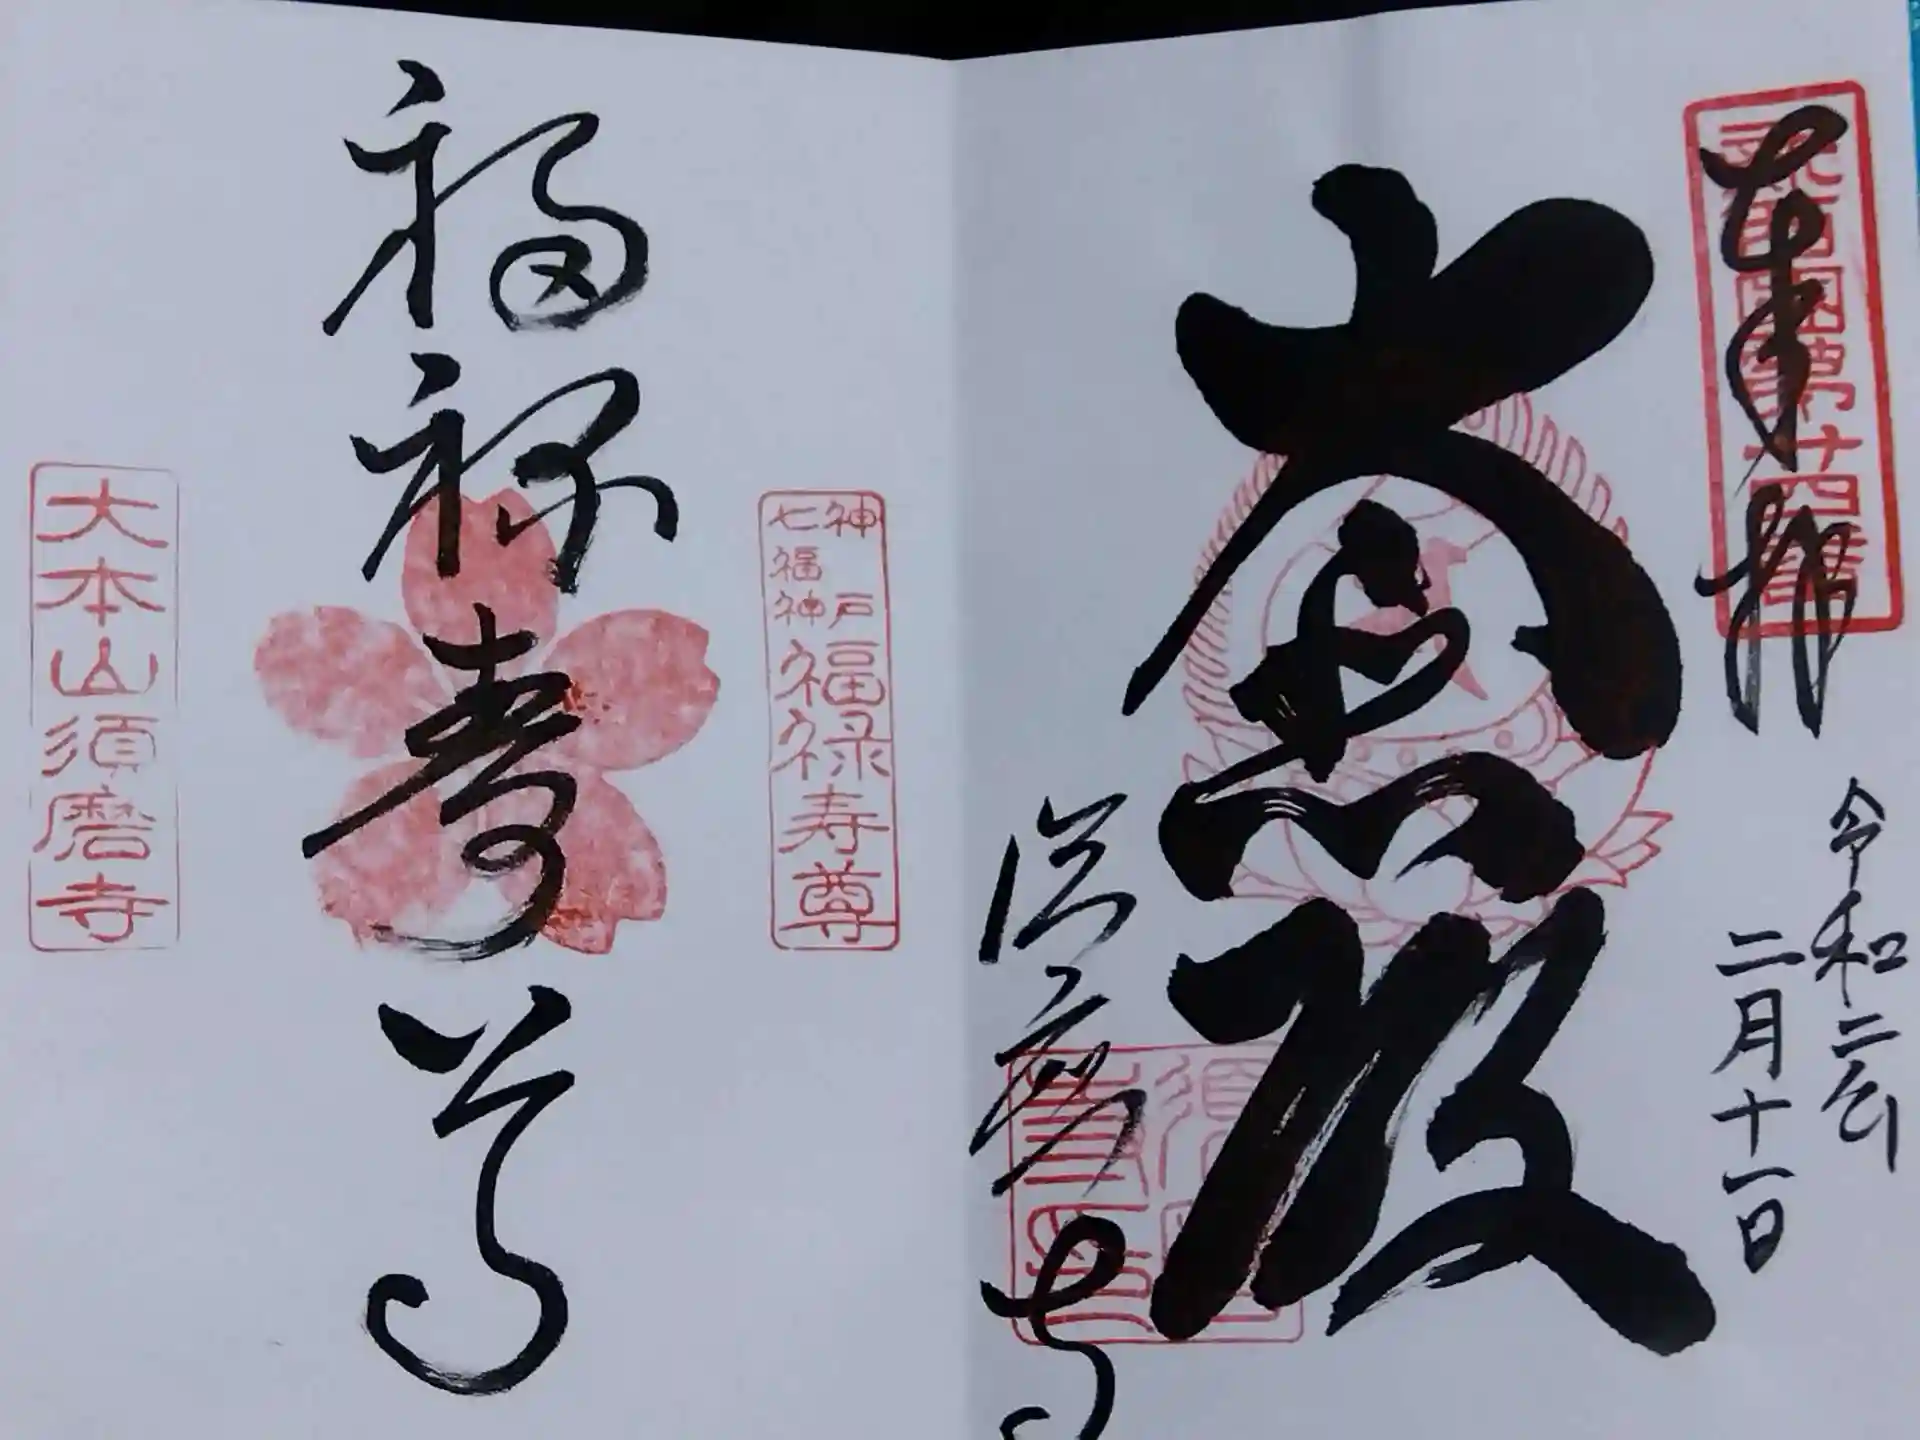 新西國第廿四番
奉拝
令和二年
二月十一日
大悲殿
須磨寺
須磨寺印
神戸
七福神
福禄寿尊
福禄寿尊
大本山須磨寺